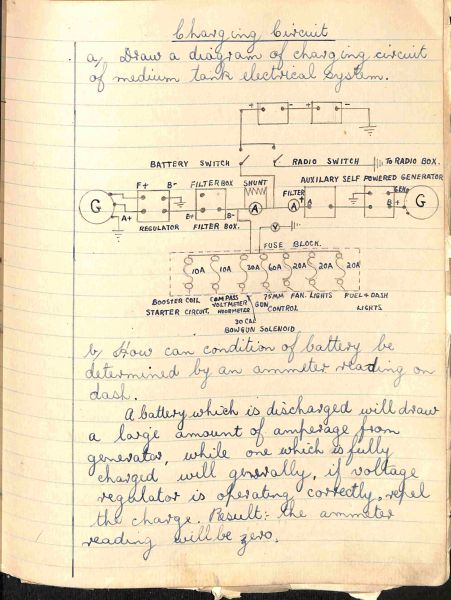 Charging Circuit
a/ Draw a diagram of charging circuit
of medium tank electrical system.
- + - +
BATTERY SWITCH RADIO SWITCH TO RADIO BOX.
F+ B- FILTER BOX SHUNT AUXILARY SELF POWERED GENERATOR
FILTER GEN
G A A A B + G
A+ B+ B-
REGULATOR FILTER BOX.
V
FUSE BLOCK.
10A 10A 30A 60A 20A 20A 20A
BOOSTER COIL COMPASS 75MM FAN. LIGHTS FUEL + DASH
VOLTMETER GUN
STARTER CIRCUIT. HOURMETER CONTROL LIGHTS
30 CAL
BOWGUN SOLENOID
b/ How can condition of battery be
determined by an ammeter reading on
dash.
A battery which is discharged will draw
a large amount of amperage from
generator, while one which is fully
charged will generally, if voltage
regulator is operating correctly, repel
the charge. Result:- the ammeter
reading will be zero.